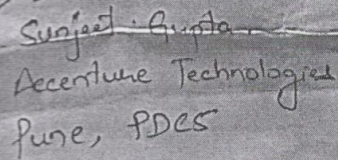 Sunjeet. Gupta.
Accenture Technologies
Pune, PDCS